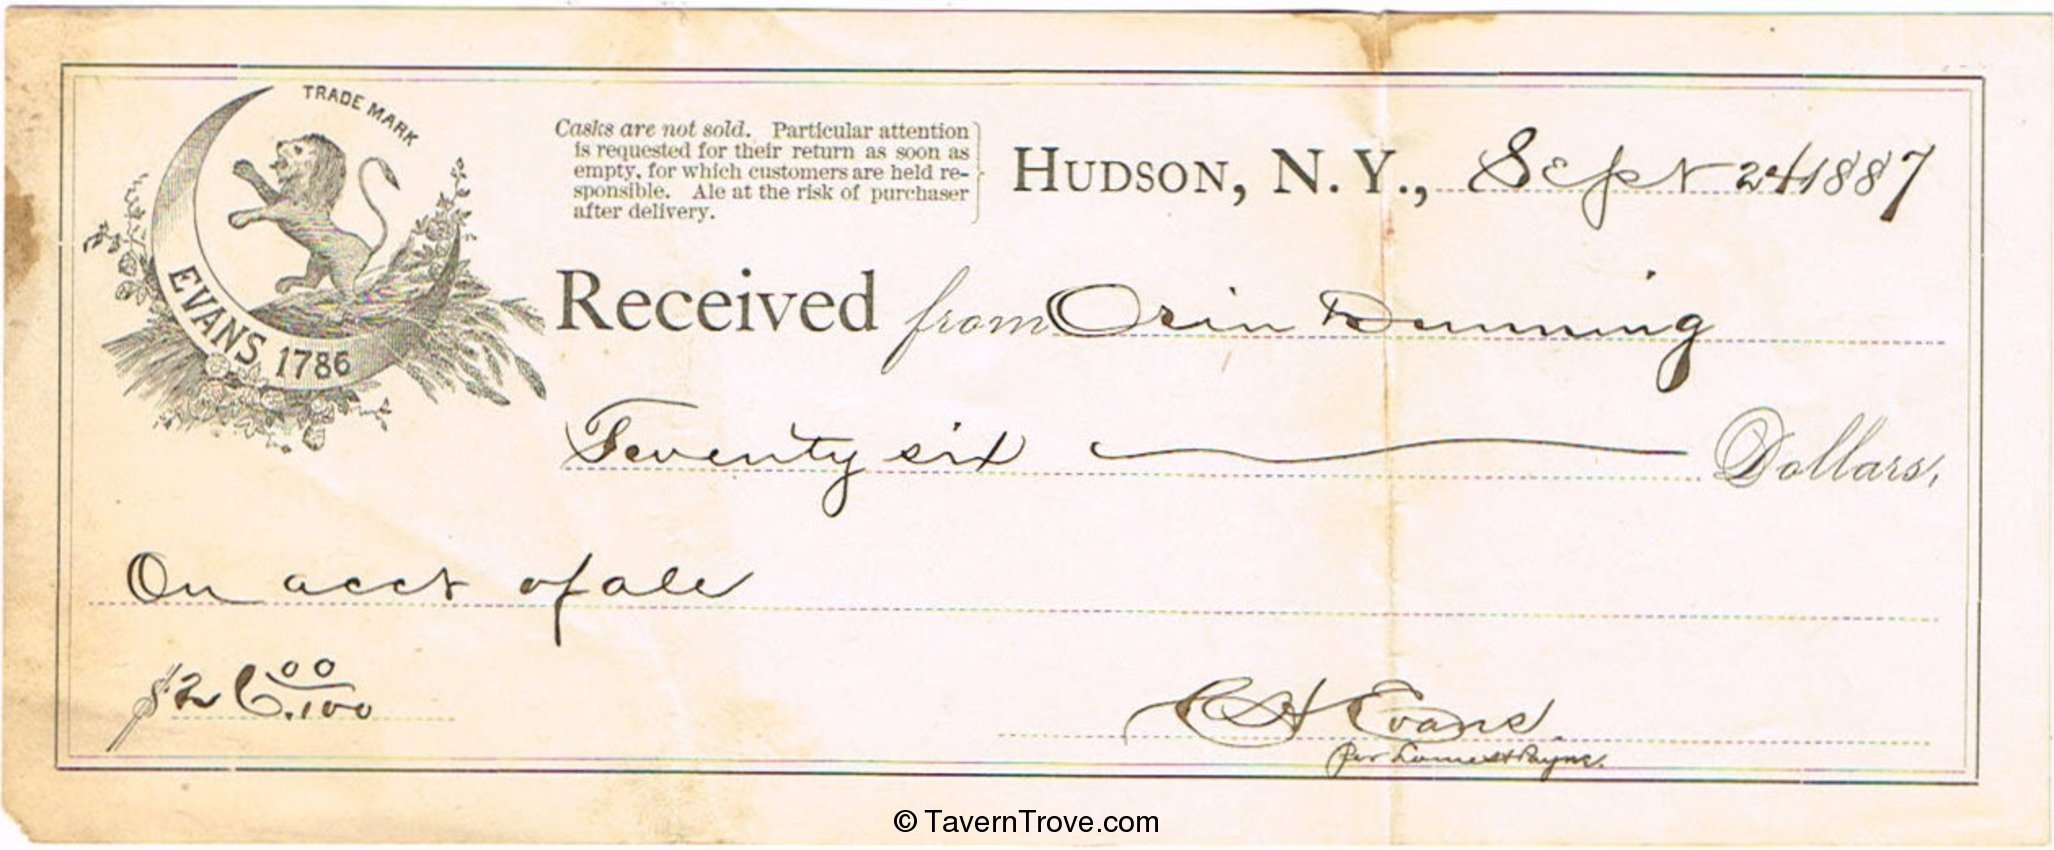 TRADE MARK
EVANS 1786
Casks are not sold. Particular attention
is requested for their return as soon as
empty, for which customers are held re-
sponsible. Ale at the risk of purchaser
after delivery.
HUDSON, N. Y., Sept 24 1887
Received from Orin Dunning
Twenty six Dollars,
On acct of ale
$26.00/100
C H Evans
per
© TavernTrove.com